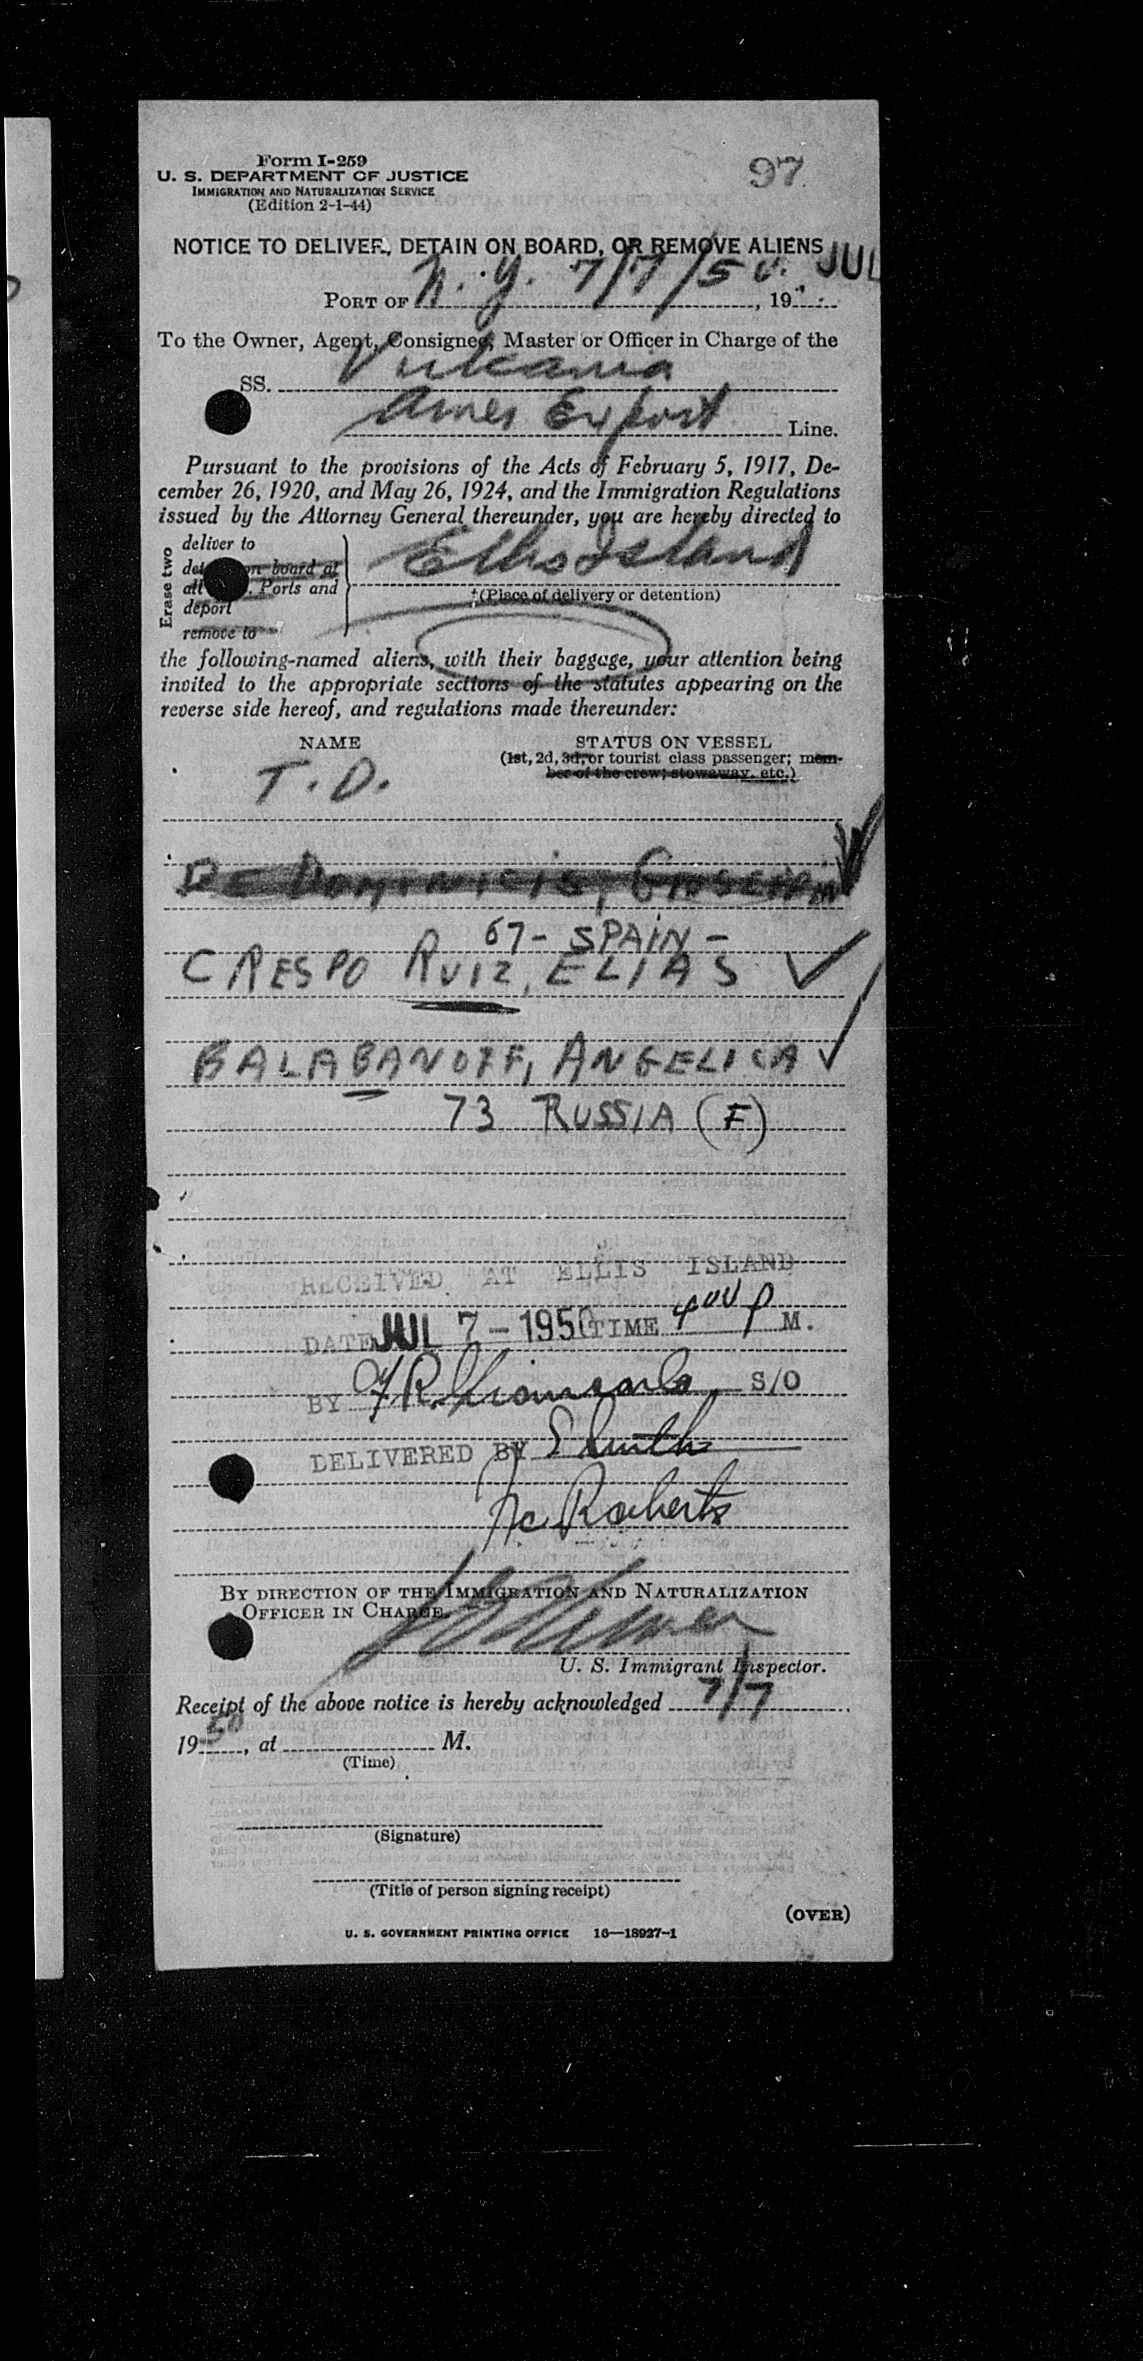 Form I-259
97
U. S. DEPARTMENT OF JUSTICE
IMMIGRATION AND NATURALIZATION SERVICE
(Edition 2-1-44)
NOTICE TO DELIVER, DETAIN ON BOARD, OR REMOVE ALIENS
JUL
PORT OF N.Y. 7/7/50, 19
To the Owner, Agent, Consignee, Master or Officer in Charge of the
SS. Vulcania
Amer Export Line.
Pursuant to the provisions of the Acts of February 5, 1917, De-
cember 26, 1920, and May 26, 1924, and the Immigration Regulations
issued by the Attorney General thereunder, you are hereby directed to
Erase two
deliver to
on board at
all . Ports and
deport
remove to
Ellis Island
(Place of delivery or detention)
the following-named aliens, with their baggage, your attention being
invited to the appropriate sections of the statutes appearing on the
reverse side hereof, and regulations made thereunder:
NAME STATUS ON VESSEL
(1st, 2d, 3d, or tourist class passenger; mem-
ber of the crew; stowaway, etc.)
T.D.
DE DOMINICIS,
67- SPAIN -
CRESPO RUIZ, ELIAS ✓
BALABANOFF, ANGELICA ✓
73 RUSSIA (F)
RECEIVED AT ELLIS ISLAND
DATE JUL 7 - 1950 TIME 400 P M.
BY S/O
DELIVERED BY Smith
Roberts
BY DIRECTION OF THE IMMIGRATION AND NATURALIZATION
OFFICER IN CHARGE.
U. S. Immigrant Inspector.
Receipt of the above notice is hereby acknowledged 7/7
1950, at M.
(Time)
(Signature)
(Title of person signing receipt)
(OVER)
U. S. GOVERNMENT PRINTING OFFICE 16—18927-1